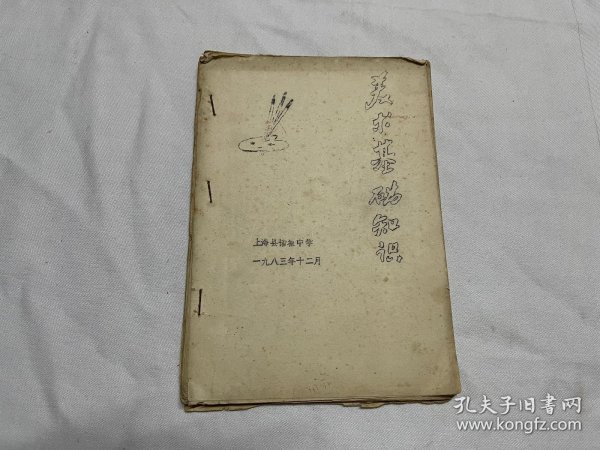 美术基础知识
上海县诸翟中学
一九八三年十二月
孔夫子旧书网
www.kongfz.com